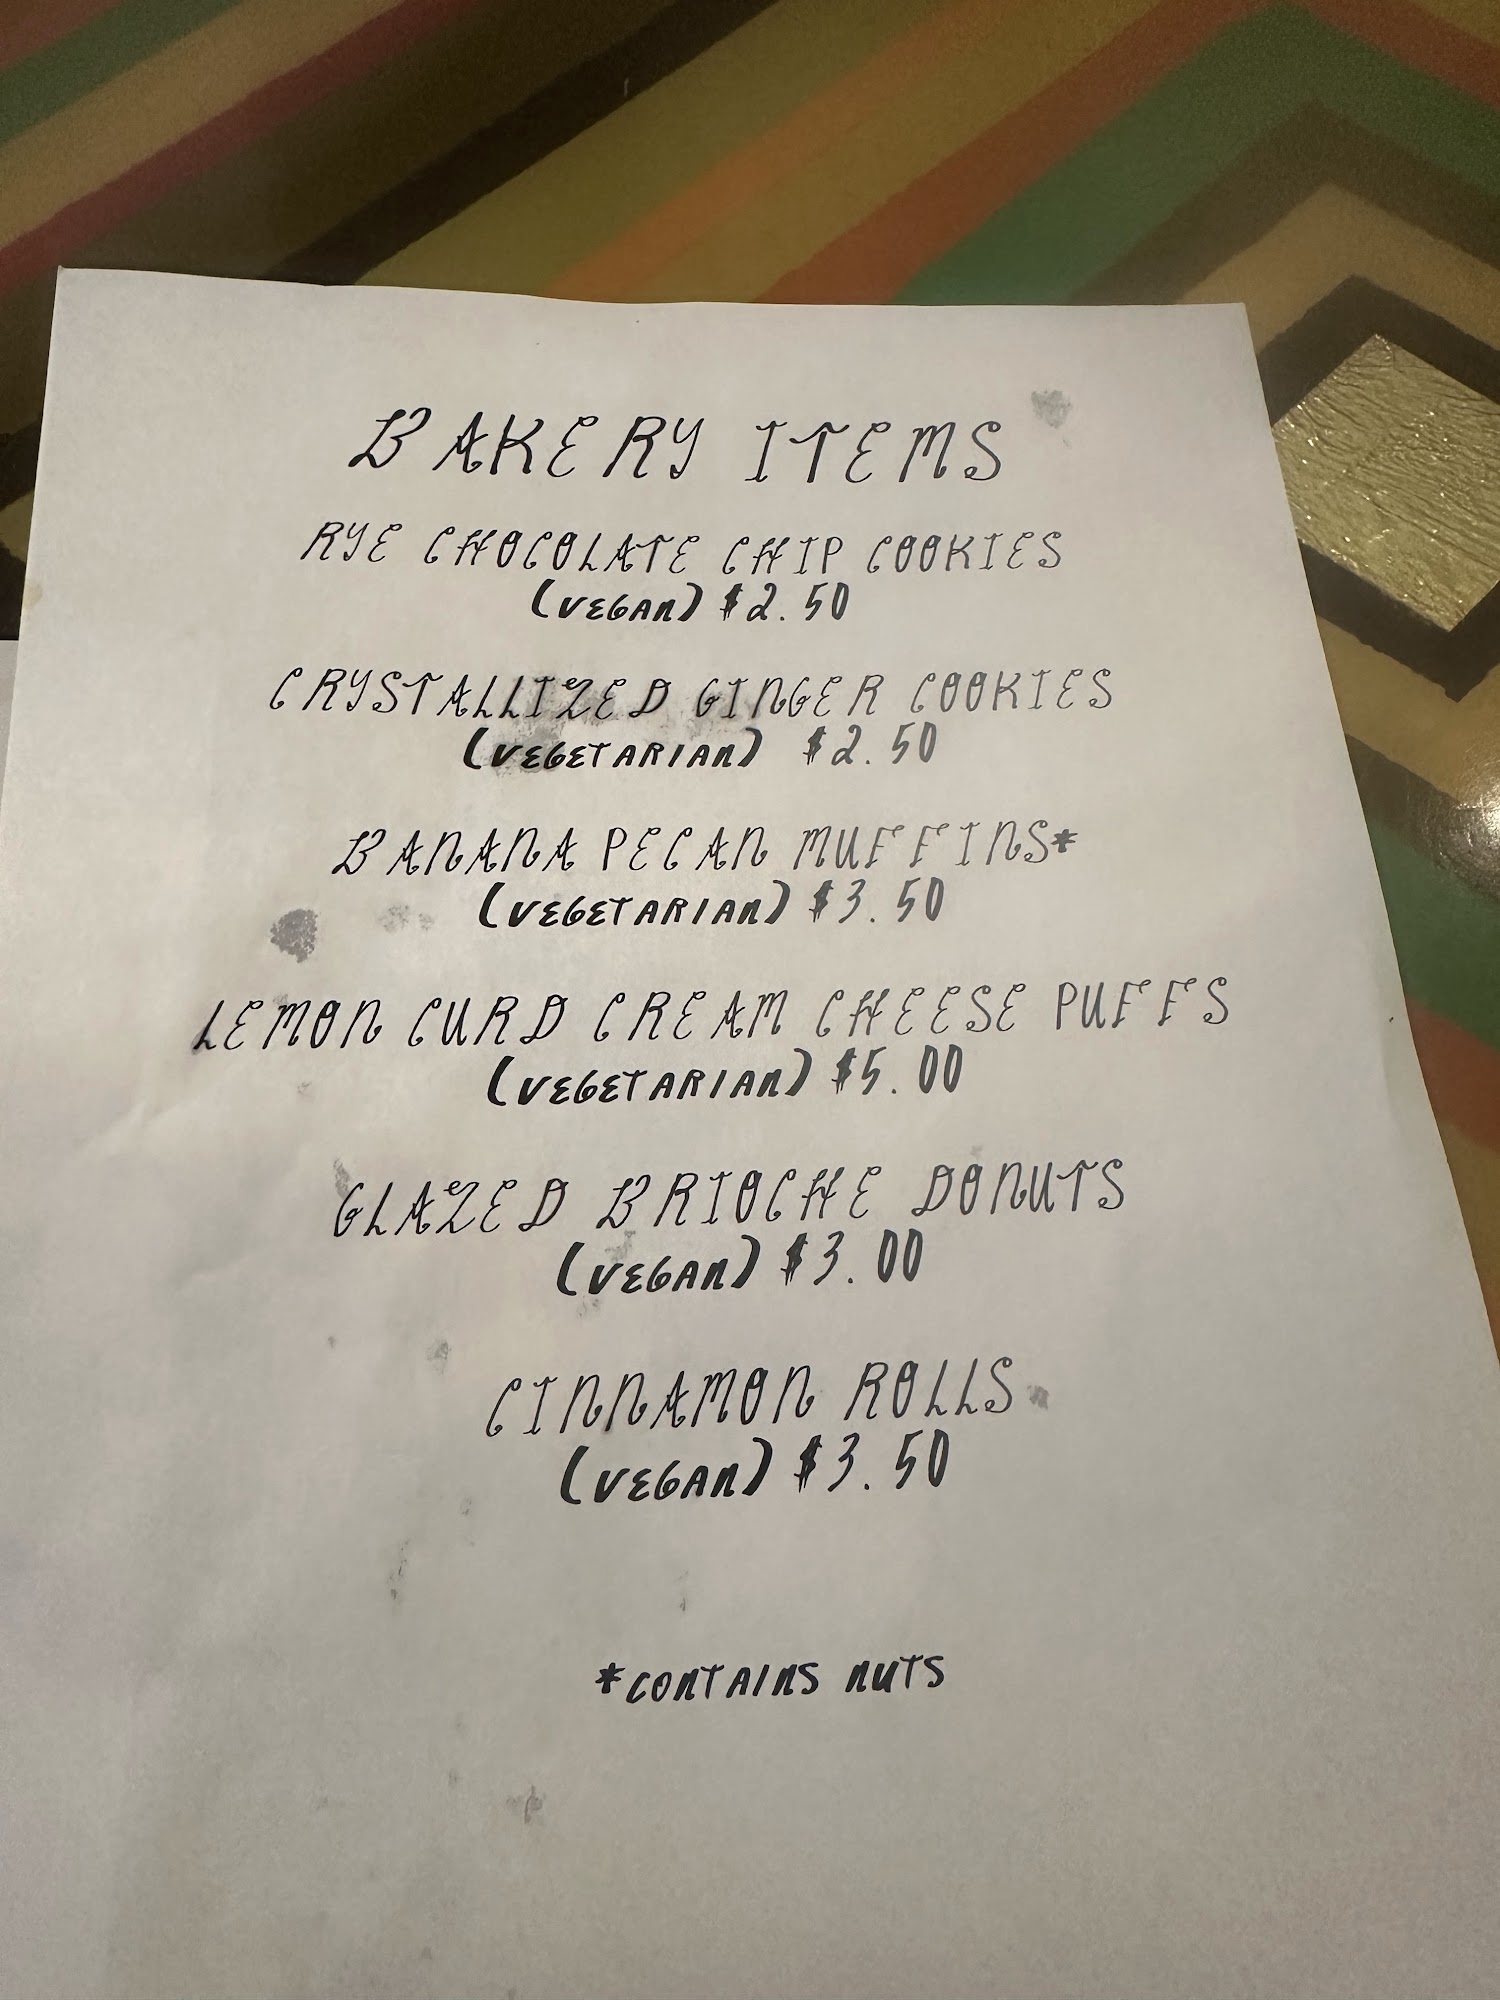 BAKERY ITEMS
RYE CHOCOLATE CHIP COOKIES
(VEGAN) $2.50
CRYSTALLIZED GINGER COOKIES
(VEGETARIAN) $2.50
BANANA PECAN MUFFINS*
(VEGETARIAN) $3.50
LEMON CURD CREAM CHEESE PUFFS
(VEGETARIAN) $5.00
GLAZED BRIOCHE DONUTS
(VEGAN) $3.00
CINNAMON ROLLS
(VEGAN) $3.50
*CONTAINS NUTS